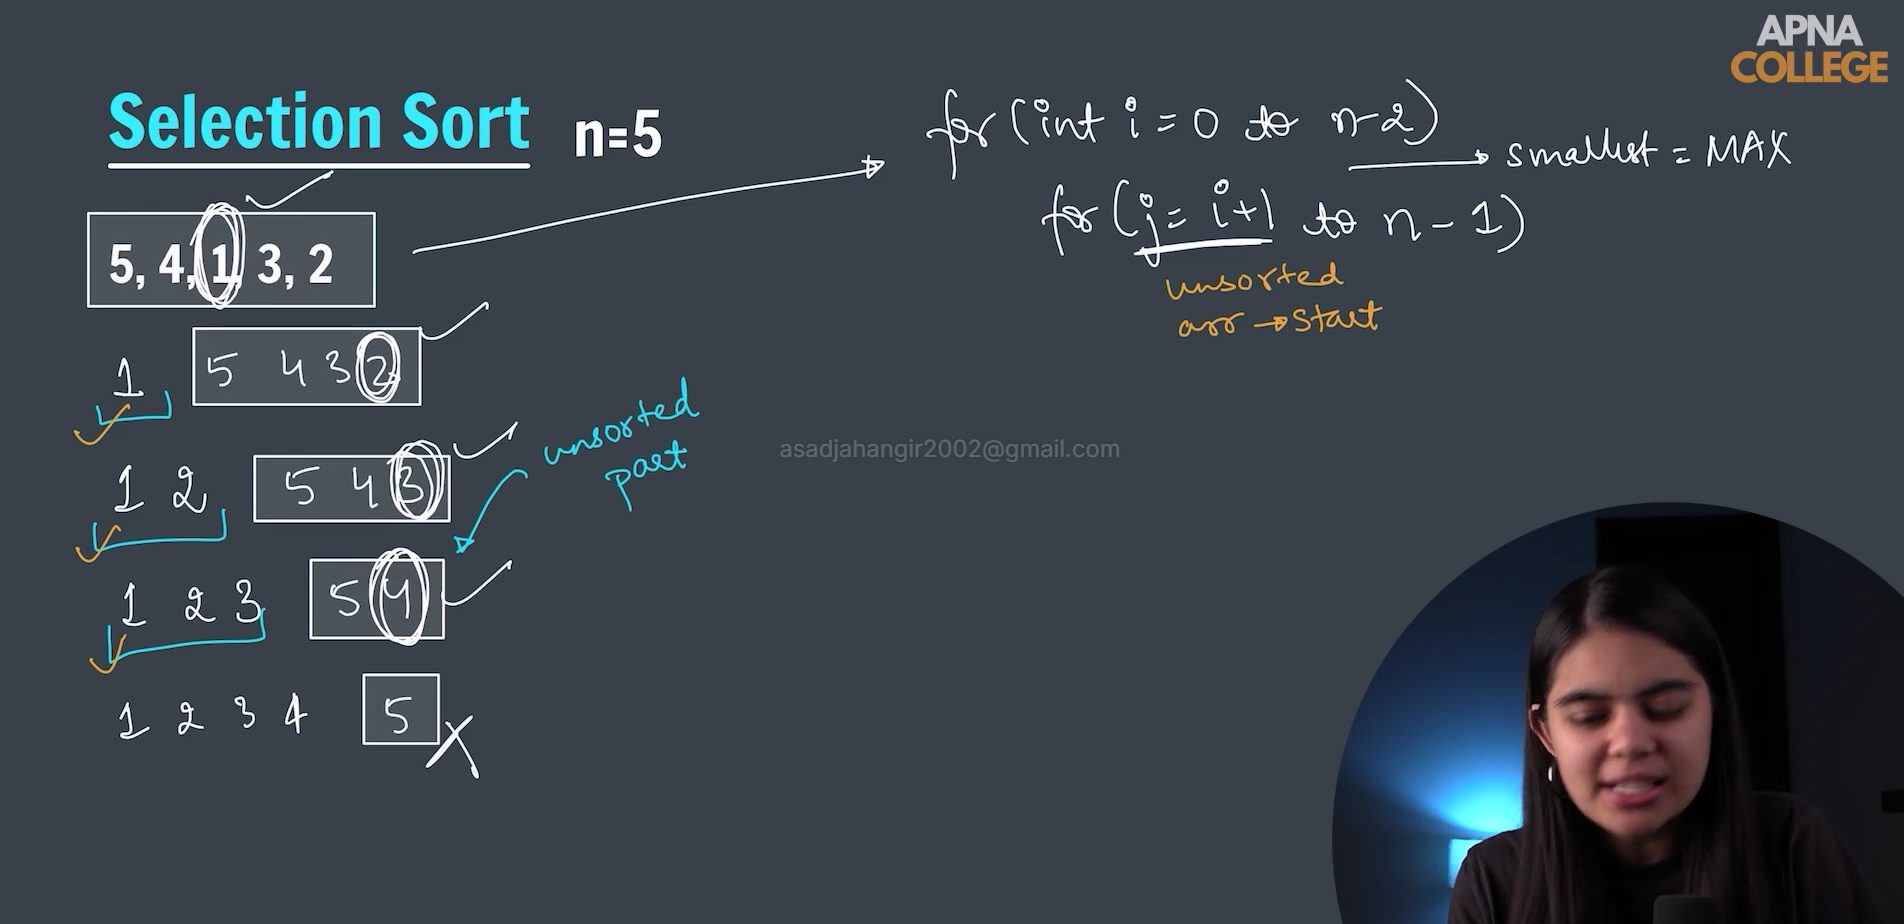 APNA
COLLEGE
Selection Sort n=5
5, 4, 1, 3, 2
1 5 4 3 2
1 2 5 4 3
1 2 3 5 4
1 2 3 4 5
unsorted
part
for (int i = 0 to n-2)
smallest = MAX
for (j = i+1 to n - 1)
unsorted
arr → start
asadjahangir2002@gmail.com